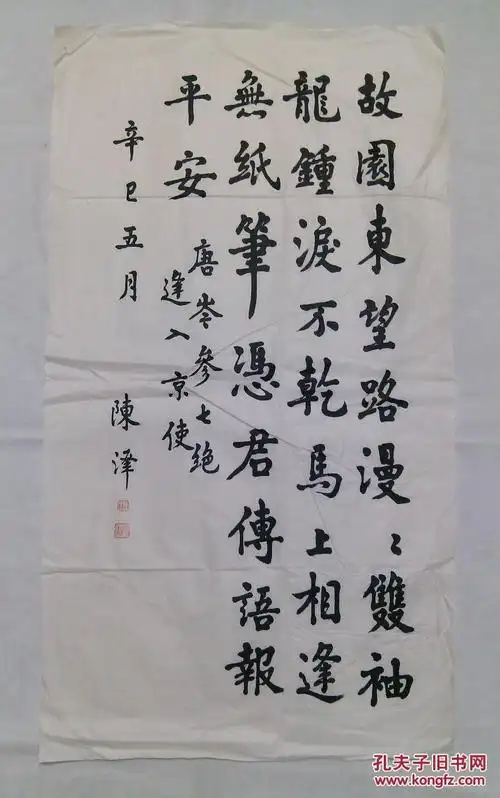 故園東望路漫〻雙袖
龍鍾淚不乾馬上相逢
無紙筆憑君傳語報
平安
唐岑參七絕
逢入京使
辛巳五月 陳澤
孔夫子旧书网
www.kongfz.com